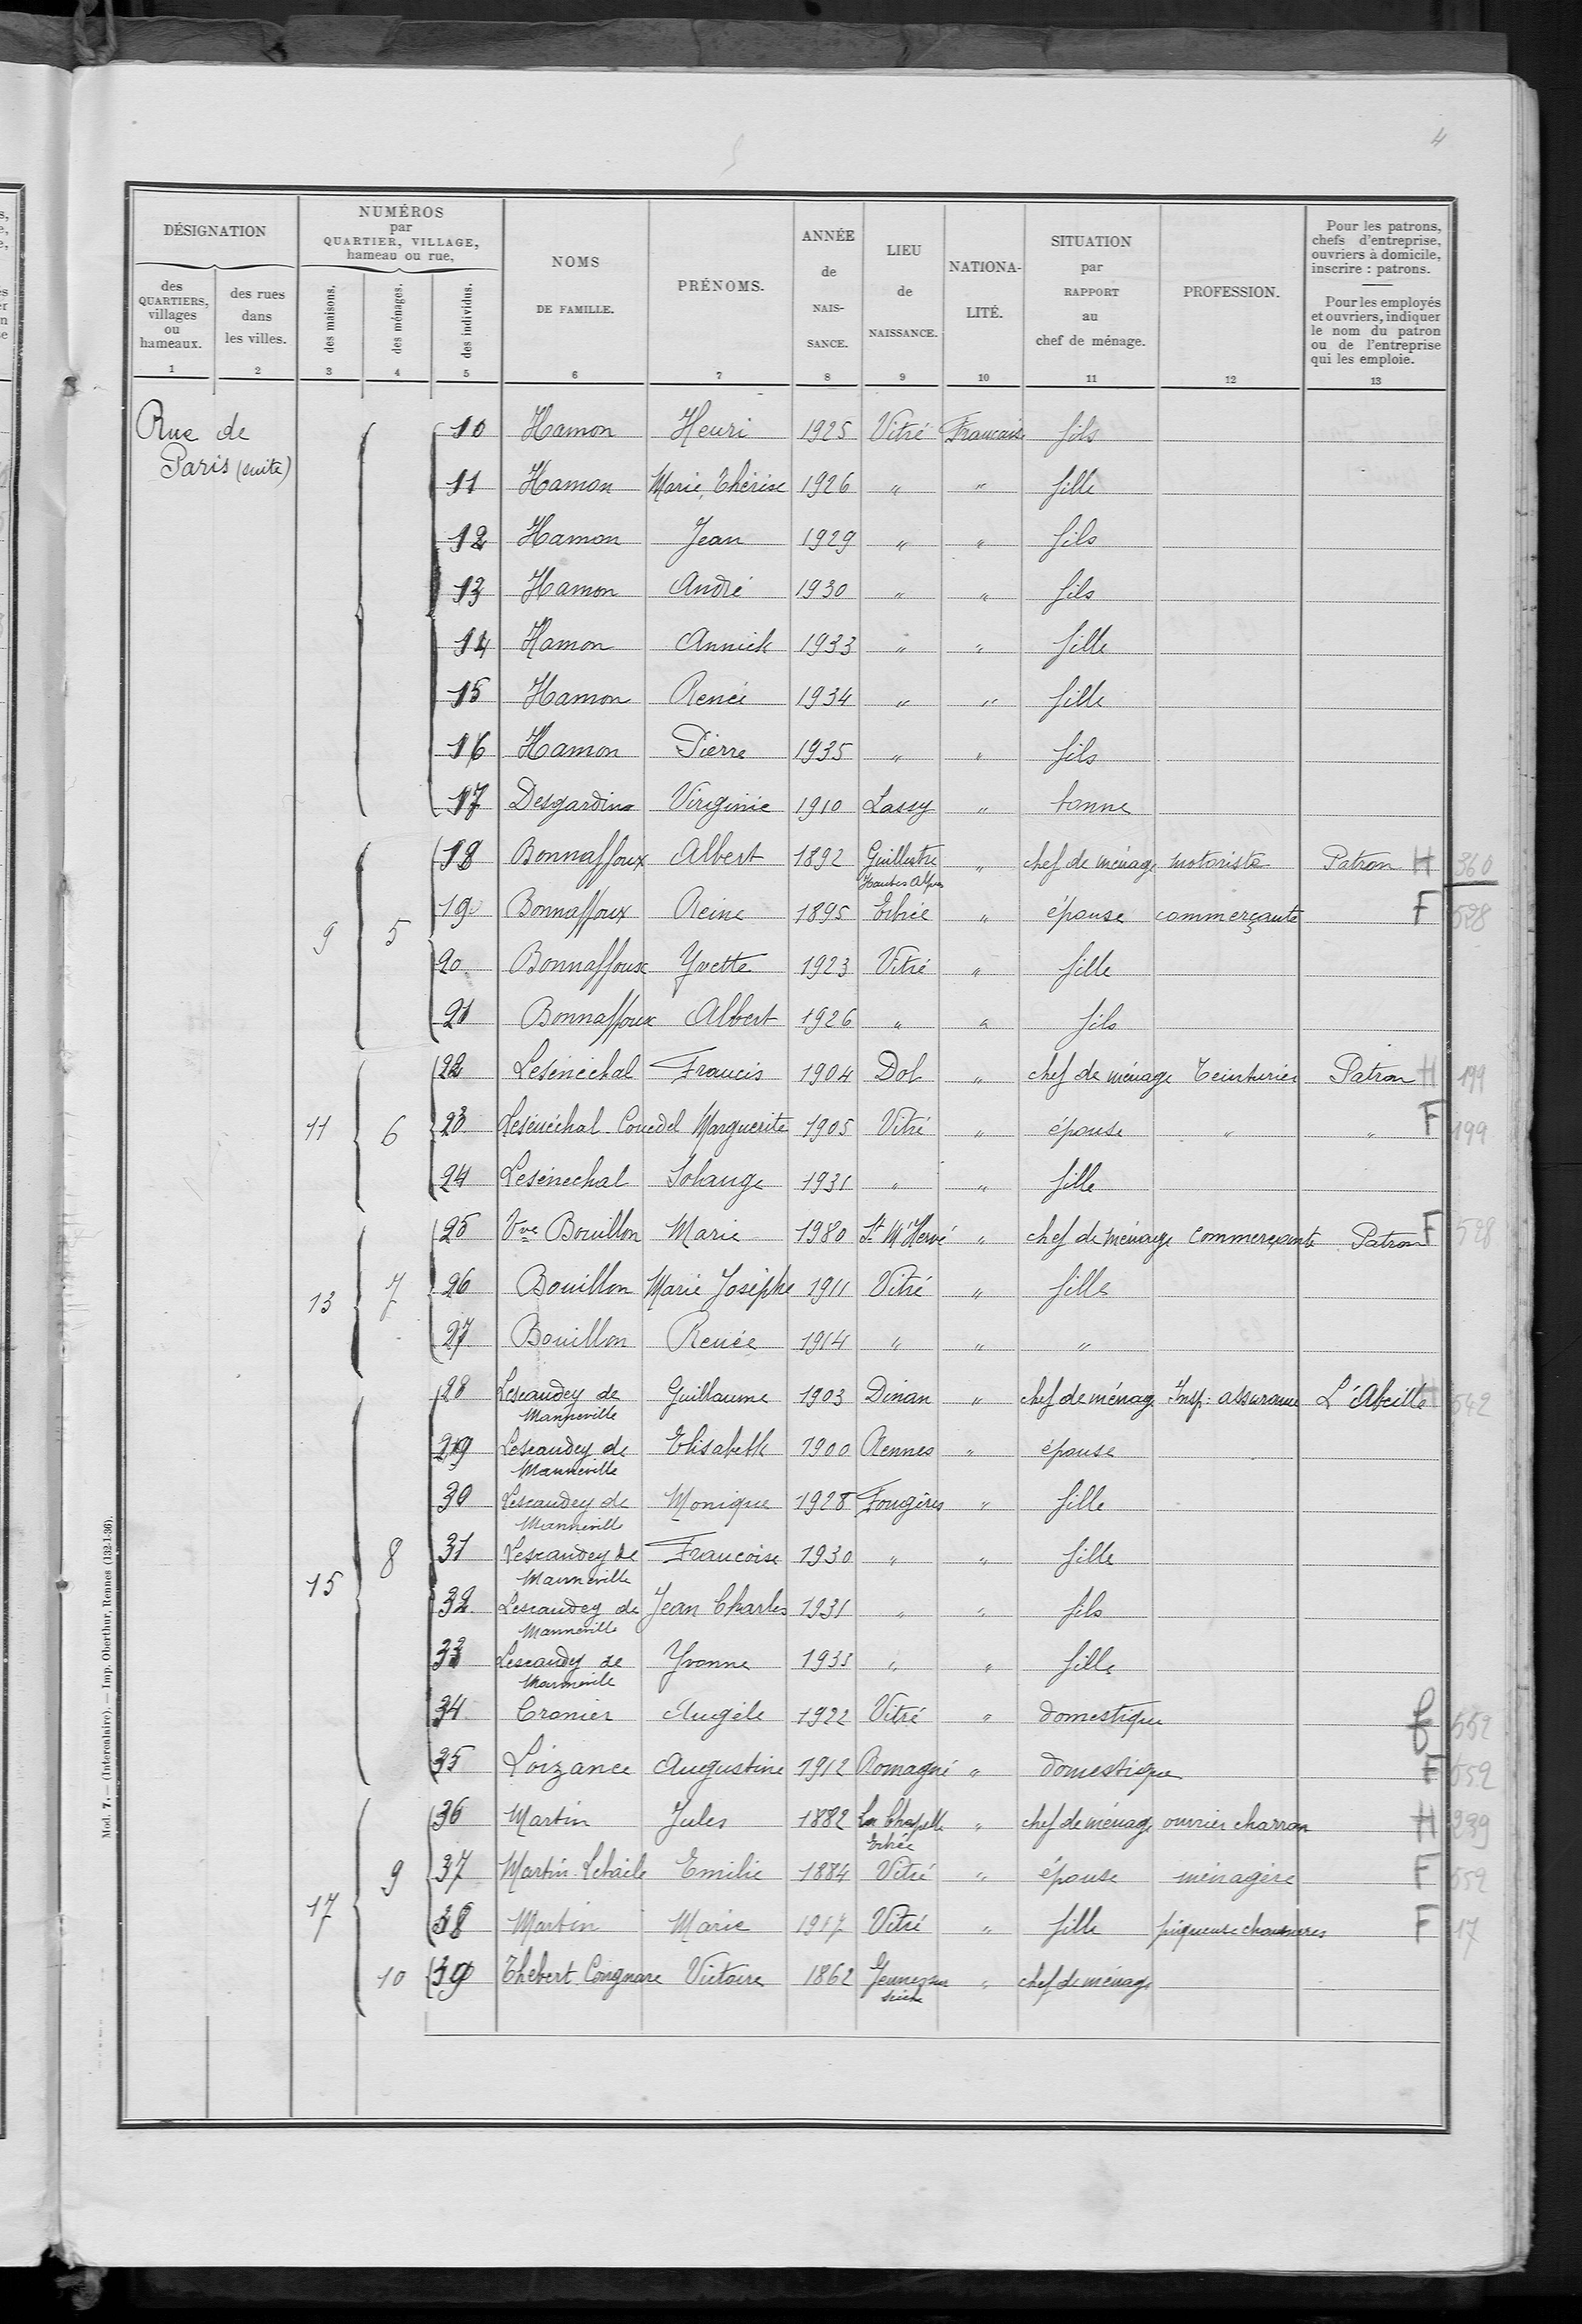 4
DÉSIGNATION
des QUARTIERS, villages ou hameaux.
des rues dans les villes.
NUMÉROS par QUARTIER, VILLAGE, hameau ou rue,
des maisons.
des ménages.
des individus.
NOMS DE FAMILLE.
PRÉNOMS.
ANNÉE de NAIS-SANCE.
LIEU de NAISSANCE.
NATIONA-LITÉ.
SITUATION par RAPPORT au chef de ménage.
PROFESSION.
Pour les patrons, chefs d'entreprise, ouvriers à domicile, inscrire : patrons.
Pour les employés et ouvriers, indiquer le nom du patron ou de l'entreprise qui les emploie.
1 2 3 4 5 6 7 8 9 10 11 12 13
Rue de
Paris (suite)
10 Hamon Henri 1925 Vitré Francais fils
11 Hamon Marie, Thérèse 1926 " " fille
12 Hamon Jean 1929 " " fils
13 Hamon André 1930 " " fils
14 Hamon Annick 1933 " " fille
15 Hamon Renée 1934 " " fille
16 Hamon Pierre 1935 " " fils
17 Desgardins Virginie 1910 Lassy " bonne
18 Bonnaffoux Albert 1892 Guillestre Hautes Alpes " chef de ménage motoriste Patron H 360
9 5 19 Bonnaffoux Reine 1895 Erbrée " épouse commerçante F 528
20 Bonnaffoux Yvette 1923 Vitré " fille
21 Bonnaffoux Albert 1926 " " fils
22 Lesénéchal Francis 1904 Dol " chef de ménage Teinturier Patron H 199
11 6 23 Lesénéchal-Couedel Marguerite 1905 Vitré " épouse " " F 199
24 Lesénechal Solange 1931 " " fille
25 Vve Bouillon Marie 1980 St M'Hervé " chef de ménage commerçante Patron F 528
13 7 26 Bouillon Marie Josèphe 1911 Vitré " fille
27 Bouillon Renée 1914 " " "
28 Lescaudey de Manneville Guillaume 1903 Dinan " chef de ménage Insp. assurance L'Abeille H 542
29 Lescaudey de Manneville Elisabeth 1900 Rennes " épouse
30 Lescaudey de Manneville Monique 1928 Fougères " fille
15 8 31 Lescaudey de Manneville Francoise 1930 " " fille
32 Lescaudey de Manneville Jean Charles 1931 " " fils
33 Lescaudy de Manneville Yvonne 1933 " " fille
34 Cronier Angèle 1922 Vitré " domestique F 552
35 Loizance Augustine 1912 Romagné " domestique F 552
36 Martin Jules 1882 La Chapelle Erbrée " chef de ménage ouvrier charron H 239
9 37 Martin-Lehaile Emilie 1884 Vitré " épouse ménagère F 552
17 38 Martin Marie 1917 Vitré " fille piqueuse chaussures F 17
10 39 Thebert Coignare Victoire 1862 Gennes sur Seiche " chef de ménage
Mod. 7. — (Intercalaire). — Imp. Oberthur, Rennes (132-1-36).